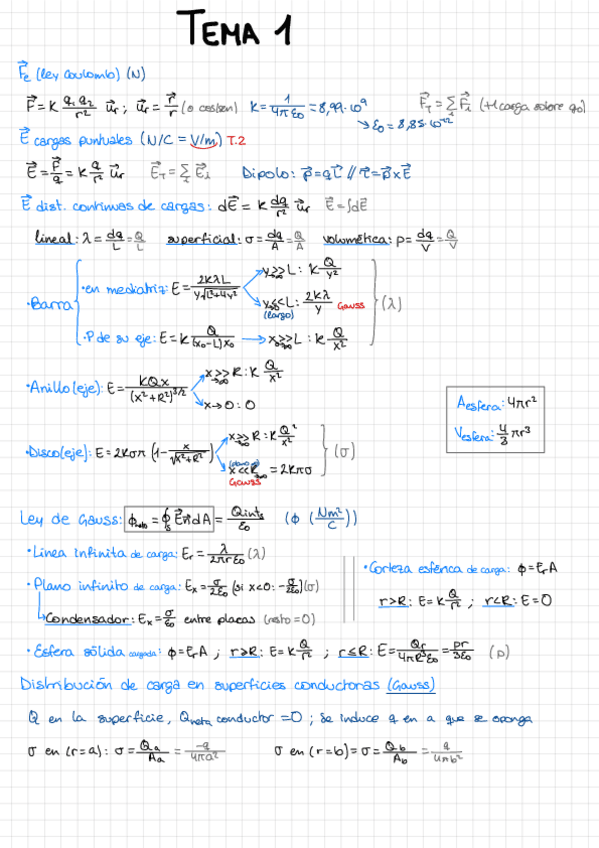 TEMA 1
F⃗e (ley coulomb) (N)
F⃗ = K q₁q₂/r² u⃗r ; u⃗r = r⃗/r (o cos/sen) K = 1/4πε₀ = 8,99·10⁹ F⃗T = ΣF⃗i (+1 carga sobre q₀)
→ ε₀ = 8,85·10⁻¹²
E⃗ cargas puntuales (N/C = V/m) T.2
E⃗ = F⃗/q = K q/r² u⃗r E⃗T = ΣE⃗i Dipolo: p⃗ = qL⃗ // τ⃗ = p⃗xE⃗
E⃗ dist. continuas de cargas: dE⃗ = K dq/r² u⃗r E⃗ = ∫dE⃗
lineal: λ = dq/L = Q/L superficial: σ = dq/A = Q/A volumétrica: ρ = dq/V = Q/V
y>>L : K Q/y²
·Barra ·en mediatriz: E = 2KλL/y√L²+4y² (λ)
y<<L : 2Kλ/y Gauss
(largo)
·P de su eje: E = K Q/(x₀-L)x₀ → x>>L : K Q/x²
x>>R : K Q/x²
·Anillo (eje): E = KQx/(x²+R²)^3/2
x→0 : 0
Aesfera: 4πr²
Vesfera: 4/3 πr³
x>>R : K Q/x²
·Disco (eje): E = 2Kσπ (1 - x/√x²+R²) (σ)
x<<R = 2Kπσ
Gauss
Ley de Gauss: ϕneto = ∮s E⃗n⃗dA = Qints/ε₀ (ϕ (Nm²/C))
·Linea infinita de carga: Er = λ/2πrε₀ (λ)
·Corteza esférica de carga: ϕ = ErA
·Plano infinito de carga: Ex = σ/2ε₀ (si x<0: -σ/2ε₀) (σ)
r>R: E = K Q/r² ; r<R: E = 0
Condensador: Ex = σ/ε₀ entre placas (resto = 0)
·Esfera sólida cargada: ϕ = ErA ; r≥R: E = K Q/r² ; r≤R: E = Qr/4πR³ε₀ = ρr/3ε₀ (ρ)
Distribución de carga en superficies conductoras (Gauss)
Q en la superficie, Qneta conductor = 0 ; se induce q en a que se oponga
σ en (r=a): σ = Qa/Aa = -q/4πa² σ en (r=b) = σ = Qb/Ab = q/4πb²